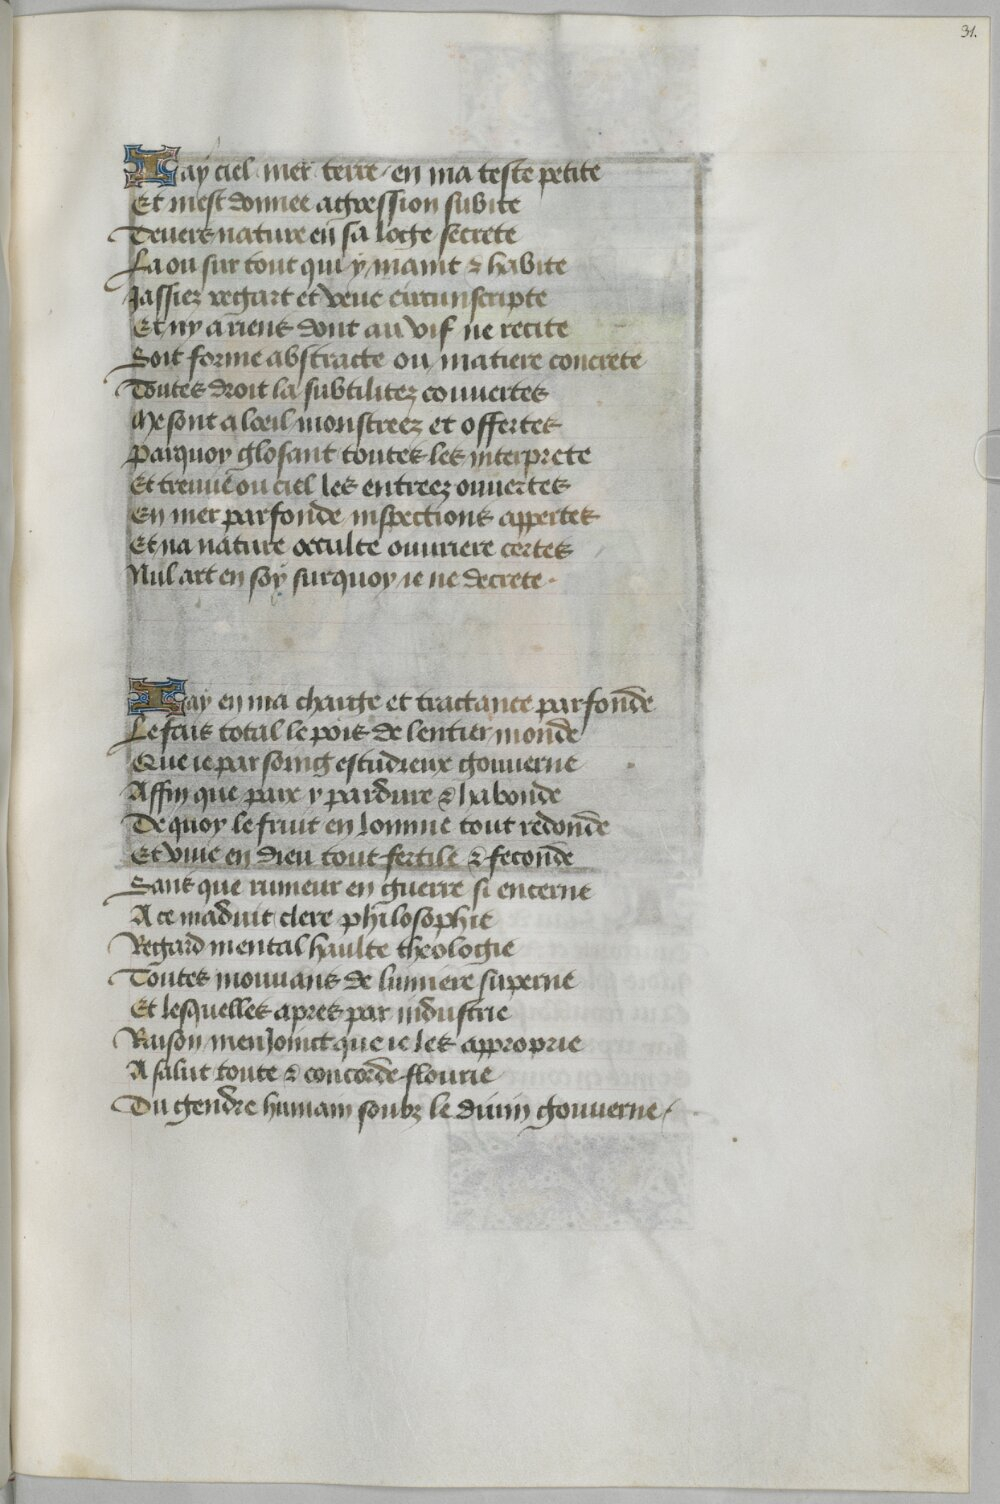 31.
Iay ciel mer terre en ma teste petite
Et mest donnee agression subite
Deuers nature en sa loge secrete
La ou sur tout qui y maint & habite
Jassiez regart et veue circunscripte
Et ny a riens dont au vif ne recite
Soit forme abstracte ou matiere concrete
Toutes droit la subtilitez couuertes
Me sont a loeil monstreez et offertes
Parquoy glosant toutes les interprete
Et treuue ou ciel les entreez ouuertes
En mer parfonde inspections appertes
Et na nature occulte ouuriere certes
Nul art en soy surquoy ie ne decrete
Iay en ma charge et tractance parfonde
Le fais total le pois de lentier monde
Que ie par soing estudieux gouuerne
Affin que paix y pardure & habonde
De quoy le fruit en lomme tout redonde
Et viue en dieu tout fertile & feconde
Sans que rumeur en guerre si encerne
A ce maduit clere philosophie
Regard mental haulte theologie
Toutes mouuans de lumiere superne
Et lesquelles apres par industrie
Raison menjoinct que ie les approprie
A salut toute & concorde flourie
Du gendre humain soubz le diuin gouuerne